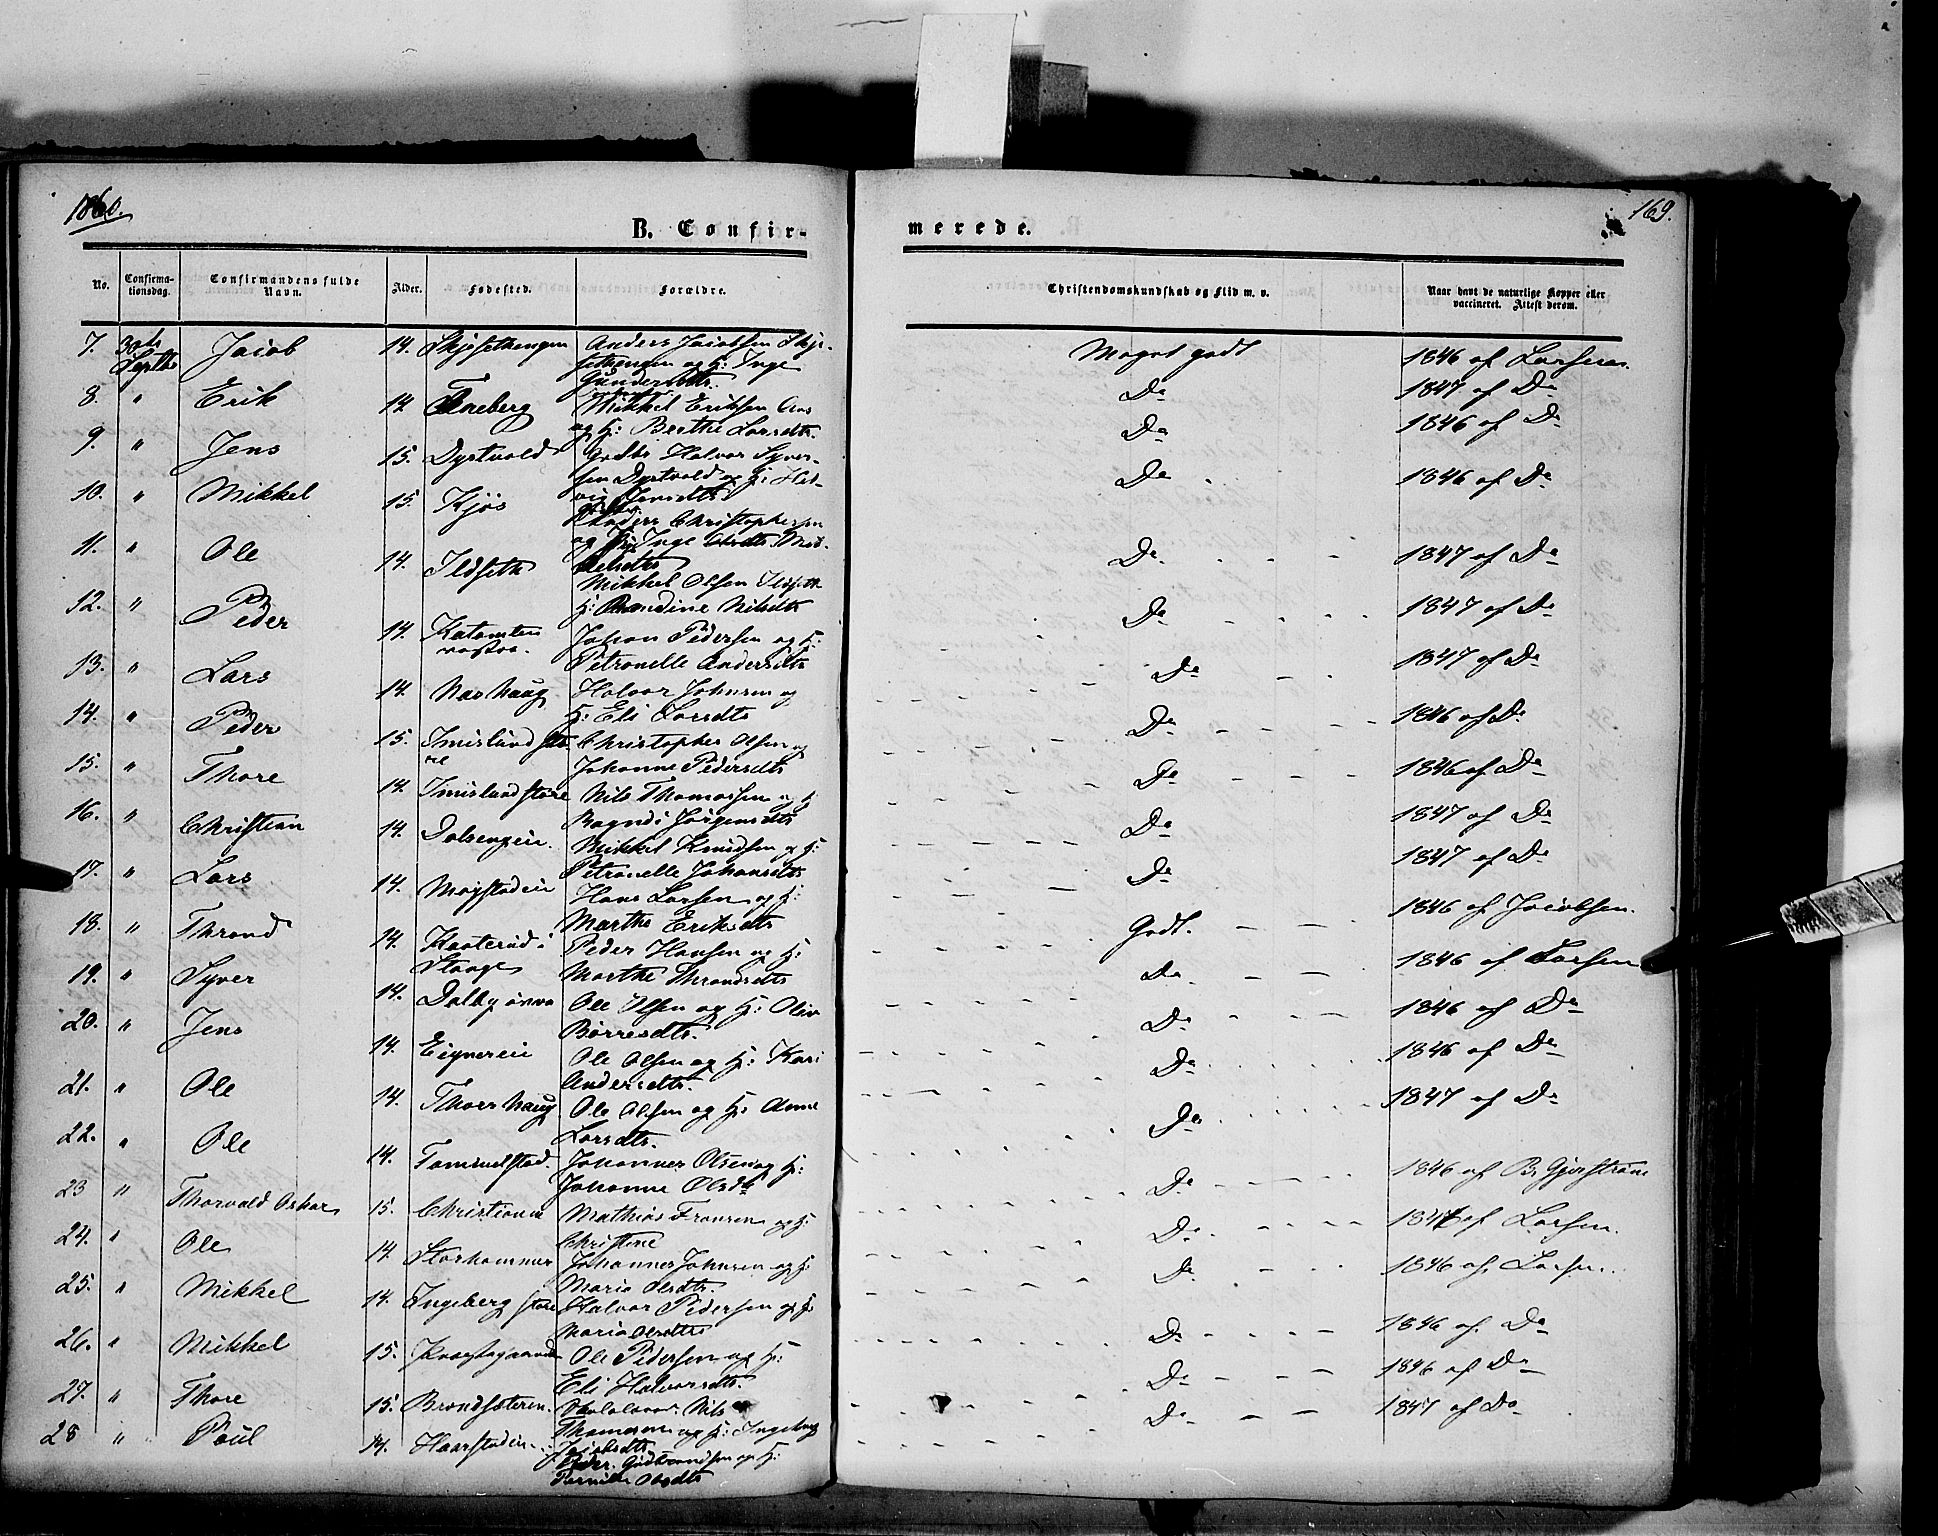 1860.
169.
B. Confir-
merede.
No.
Confirma-
tionsdag.
Confirmandens fulde
Navn.
Alder.
Fødested.
Forældre.
Christendomskundskab og Flid m. v.
Naar havt de naturlige Kopper eller
vaccineret. Attest derom.
7. 30th Jacob 14. Skjesethengen Anders Jacobsen Skje-
Septbr sethengen og H: Inge
Gundersdtr.
Meget godt 1846 af Larsen.
8. " Erik 14. Fineberg Mikkel Eriksen
og H: Berthe Larsdtr.
Do 1847 af Do
9. " Jens 15. Dystvold Gdbr Halvor Syver-
sen Dystvold og H: Hed-
vig Jensdtr
Do 1846 af Do
10. " Mikkel 15. Kjøs Anders Christophersen
og Inge
Do 1846 af Do
11. " Ole 14. Ildseth Mikkel Olsen Ildseth
H: Randine Nilsdtr
Do 1847 af Do
12. " Peder 14. Johan Pedersen og H:
Petronelle Andersdtr
Do 1847 af Do
13. " Lars 14. Nashaug Halvor Johnsen og
H: Eli Larsdtr
Do 1847 af Do
14. " Peder 15. Imislund sto- Christopher Olsen og
re Johanne Pedersdtr
Do 1846 af Do
15. " Thore 14. Imislund store Nils Thomassen og H:
Ragndi Jørgensdtr
Do 1846 af Do
16. " Christian 14. Dalsengein. Mikkel Knudsen og H:
Petronelle Johansdtr
Do 1847 af Do
17. " Lars 14. Magstadein Hans Larsen og H:
Marthe Eriksdtr
Do 1847 af Do
18. " Thrond 14. Kaaterud i Peder Hansen og H:
Stange Marthe Throndsdtr
Godt. 1846 af Jacobsen.
19. " Syver 14. Dalby øvre Ole Olsen og H: Oliv
Børresdtr.
Do 1846 af Larsen
20. " Jens 14. Eignereie Ole Olsen og H: Kari
Andersdtr.
Do 1846 af Do
21. " Ole 14. Thorshaug Ole Olsen og H: Anne
Larsdtr.
Do 1846 af Do
22. " Ole 14. Tommelstad. Johannes Olsen og H:
Johanne Olsdtr
Do 1847 af Do
23 " Thorvald Oskar 15. Christiania Mathias Fransen og H:
Christine
Do 1846 af B. Gjerstrøm
24. " Ole 14. Storhammer Johannes Johnsen og H:
Maria Olsdtr.
Do 1847 af Larsen.
25. " Mikkel 14. Ingeberg store Halvor Pedersen og H:
Maria Olsdtr
Do 1846 af Larsen.
26. " Mikkel 15. Ole Pedersen og H:
Eli Halvorsdtr.
Do 1846 af Do
27. " Thore 15. Brondsæteren. Skolelærer Nils
Thomesen og H: Ingeborg
Jacobsdtr
Do 1846 af Do
28 " Poul 14. Haarstadein Peder Gudbrandsen og H:
Pernille Olsdtr
Do 1847 af Do